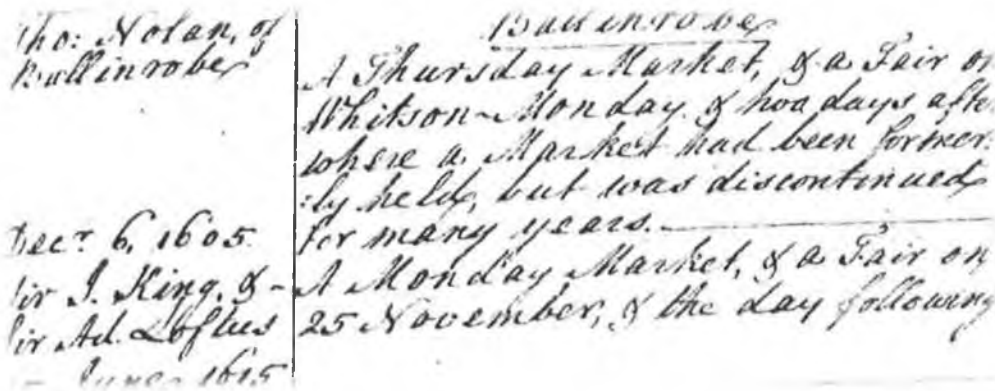 Tho: Nolan, of
Ballinrobe
Decr 6, 1605
Sir J. King, & -
Sir Ad. Loftus
June 1615
Ballinrobe
A Thursday Market, & a Fair on
Whitson-Monday & two days after
where a Market had been former:
:ly held, but was discontinued
for many years.
A Monday Market, & a Fair on
25 November, & the day following